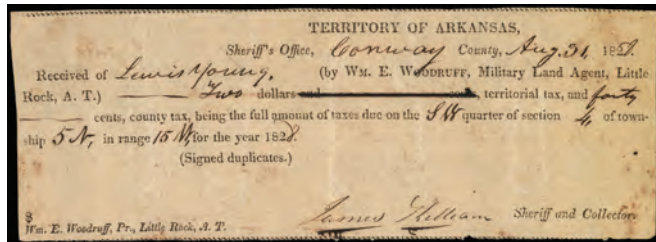 TERRITORY OF ARKANSAS,
Sheriff's Office, Conway County, Aug. 31, 1828.
Received of Lewis Young, (by WM. E. WOODRUFF, Military Land Agent, Little
Rock, A. T.) Two dollars and cents, territorial tax, and forty
cents, county tax, being the full amount of taxes due on the S W quarter of section 4, of town-
ship 5 N, in range 15 W, for the year 1828.
(Signed duplicates.)
$
James Killiam Sheriff and Collector.
Wm. E. Woodruff, Pr., Little Rock, A. T.